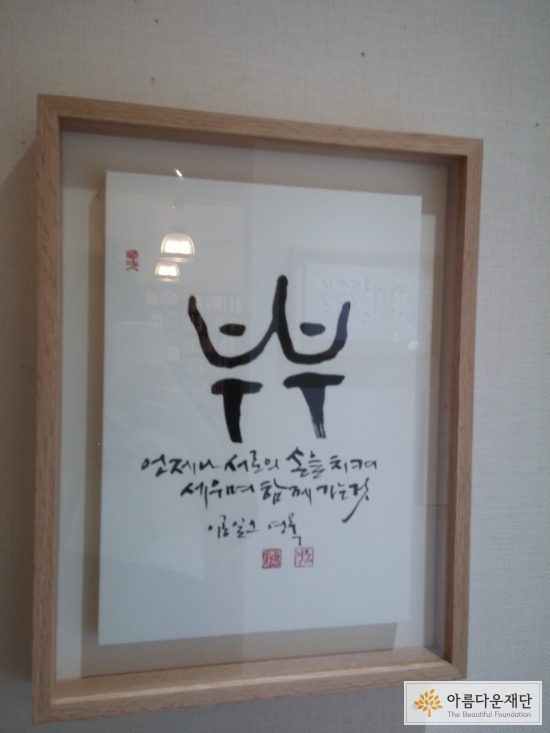 부부
언제나 서로의 손을 치켜
세우며 함께 가는 것
아름다운재단
The Beautiful Foundation